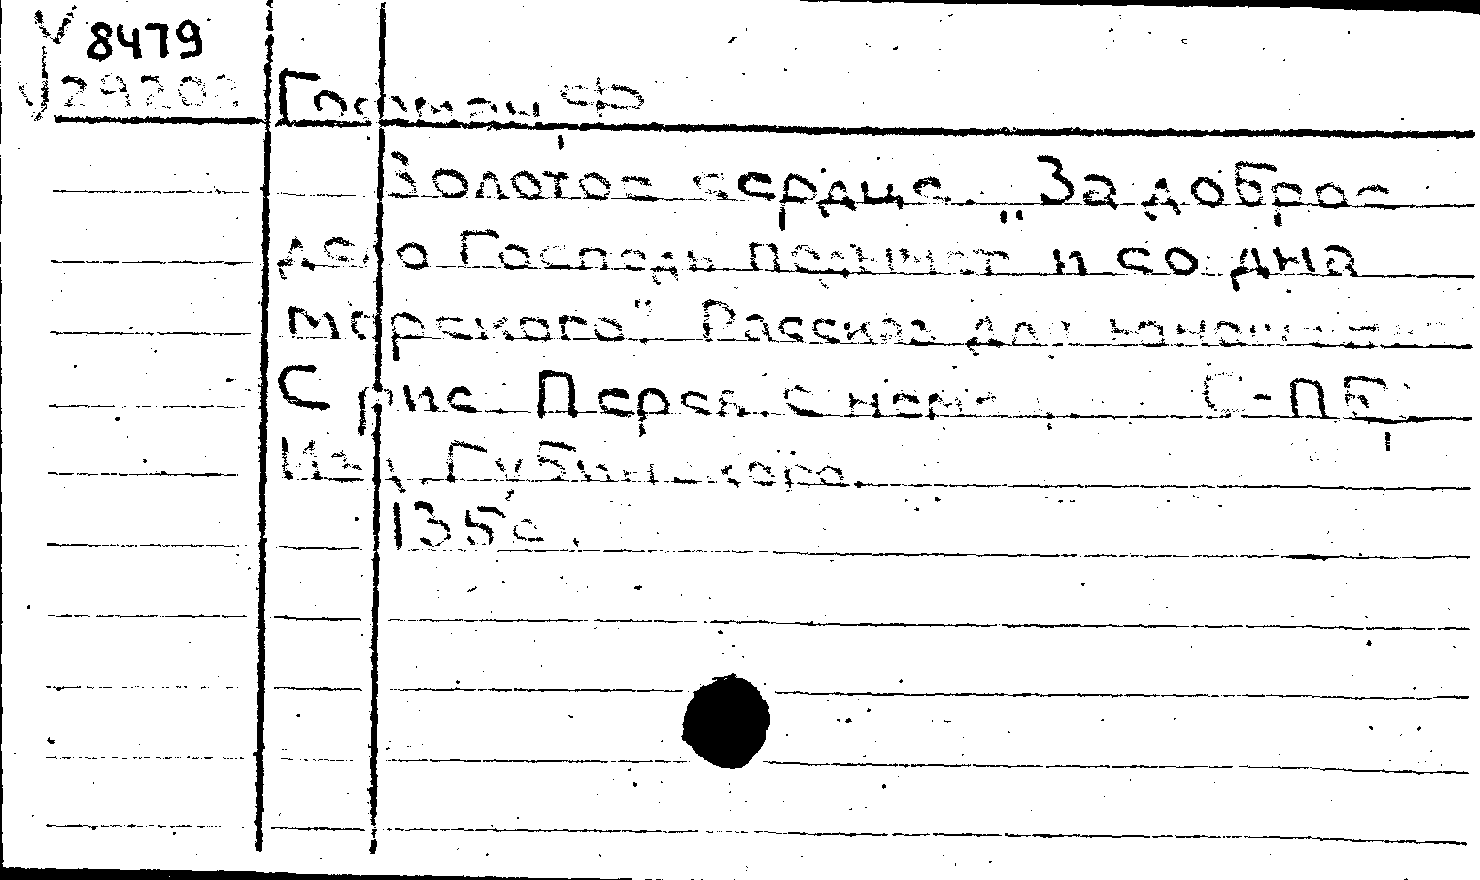 V 8479
V 29202 Гофман, Ф
Золотое сердце. „За доброе
дело Господь подымет и со дна
морского". Рассказ для юношества
С рис. Перев. с нем. С-ПБ,
Изд. Губинского.
135 с.